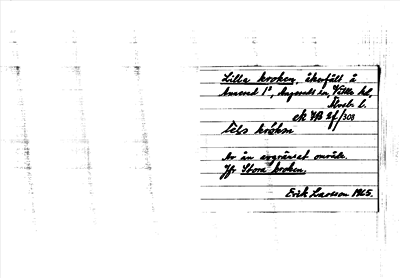 Lilla kroken, åkerfält å
Annerud 1⁰, Angereds sn, Vättle hd,
Älvsb. l.
ek 7B 2f/308
kroken
Av ån avgränsat område.
Jfr Stora kroken.
Erik Larsson 1965.